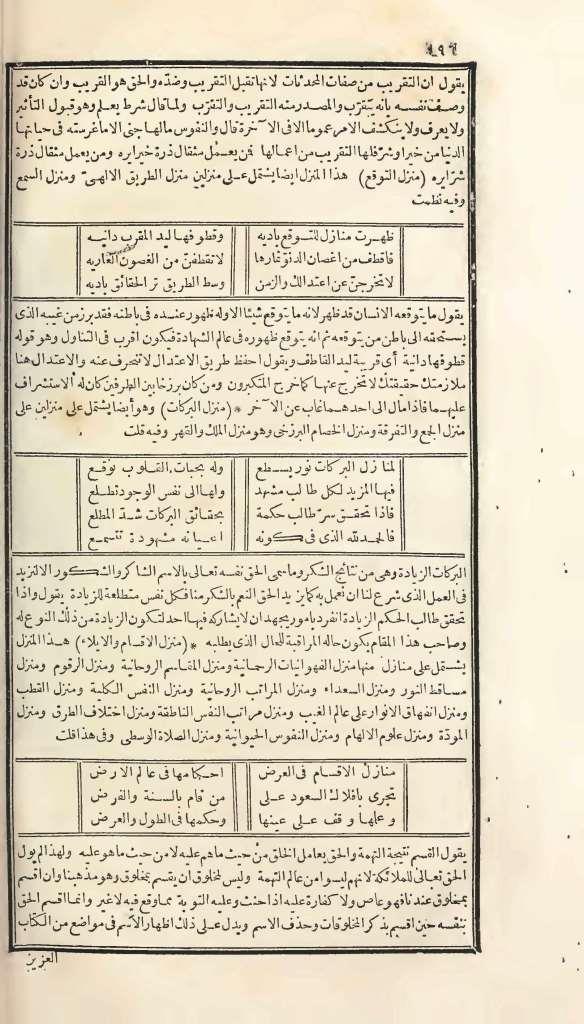 ١٩٦
يقول ان التقريب من صفات المحدثات لانها تقبل التقريب وضده والحق هو القريب وان كان قد
وصف نفسه بأنه يتقرب والمصدر منه التقريب والتقرب ولما قال شرط يعلم وهو قبول التأثير
ولا يعرف ولا ينكشف الامر عموما الا فى الآخرة قال والنفوس مالها جنى الا ماغرسته فى حياتها
الدنيا من خير او شر فلها التقريب من اعمالها فمن يعمل مثقال ذرة خيرا يره ومن يعمل مثقال ذرة
شرا يره (منزل التوقع) هذا المنزل ايضا يشتمل على منزلين منزل الطريق الالهى ومنزل السمع
وفيه نظمت
ظهرت منازل للتوقع باديه وقطوفها ليد المقرب دانيه
فاقطف من اغصان الدنو ثمارها لا تقطفن من الغصون العاريه
لا تخرجن عن اعتدالك والزمن وسط الطريق تر الحقائق باديه
يقول ما يتوقعه الانسان قد ظهر لانه ما يتوقع شيئا الا وله ظهور عنده فى باطنه فقد برز من غيبه الذى
يستحقه الى باطن من يتوقعه ثم انه يتوقع ظهوره فى عالم الشهادة فيكون اقرب فى التناول وهو قوله
قطوفها دانية أى قريبة ليد القاطف ويقول احفظ طريق الاعتدال لا تنحرف عنه والاعتدال هنا
ملازمتك حقيقتك لا تخرج عنها كما خرج المتكبرون ومن كان برزخا بين الطرفين كان له الاستشراف
عليهما فاذا مال الى احدهما غاب عن الآخر * (منزل البركات) وهو أيضا يشتمل على منزلين على
منزل الجمع والتفرقة ومنزل الخصام البرزخى وهو منزل الملك والقهر وفيه قلت
لمنازل البركات نور يسطع وله بحبات القلوب توقع
فيها المزيد لكل طالب مشهد ولها الى نفس الوجود تطلع
فاذا تحقق سر طالب حكمة بحقائق البركات شد المطلع
فالحمد لله الذى فى كونه اعيانه مشهودة تتسمع
البركات الزيادة وهى من نتائج الشكر وما سمى الحق نفسه تعالى بالاسم الشاكر والشكور الا لنزيد
فى العمل الذى شرع لنا ان نعمل به كما يزيد الحق النعم بالشكر منا فكل نفس متطلعة للزيادة يقول واذا
تحقق طالب الحكم الزيادة انفرد بامور يجهد ان لا يشاركه فيها احد لتكون الزيادة من ذلك النوع له
وصاحب هذا المقام يكون حاله المراقبة للحال الذى يطلبه * (منزل الاقسام والايلاء) هذا المنزل
يشتمل على منازل منها منزل الفهوانيات الرحمانية ومنزل المقاسم الروحانية ومنزل الرقوم ومنزل
مساقط النور ومنزل السعداء ومنزل المراتب الروحانية ومنزل النفس الكلية ومنزل القطب
ومنزل انفهاق الانوار على عالم الغيب ومنزل مراتب النفس الناطقة ومنزل اختلاف الطرق ومنزل
المودة ومنزل علوم الالهام ومنزل النفوس الحيوانية ومنزل الصلاة الوسطى وفى هذا قلت
منازل الاقسام فى العرض احكامها فى عالم الارض
تجرى بافلاك السعود على من قام بالسنة والفرض
وعلمها وقف على عينها وحكمها فى الطول والعرض
يقول القسم نتيجة التهمة والحق يعامل الخلق من حيث ما هم عليه لا من حيث ما هو عليه ولهذا لم يول
الحق تعالى للملائكة لانهم ليسوا من عالم التهمة وليس لمخلوق ان يقسم بمخلوق وهو مذهبنا وان اقسم
بمخلوق عندنا فهو عاص ولا كفارة عليه اذا حنث وعليه التوبة مما وقع فيه لا غير وانما اقسم الحق
بنفسه حين اقسم بذكر المخلوقات وحذف الاسم ويدل على ذلك اظهار الاسم فى مواضع من الكتاب
العزيز